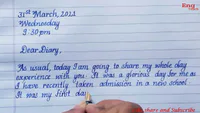 Eng
31st March, 2021
Wednesday
9:30pm
Dear Diary,
As usual, today I am going to share my whole day
experience with you. It was a glorious day for me as
I have recently taken admission in a new school.
It was my first day
share and Subscribe